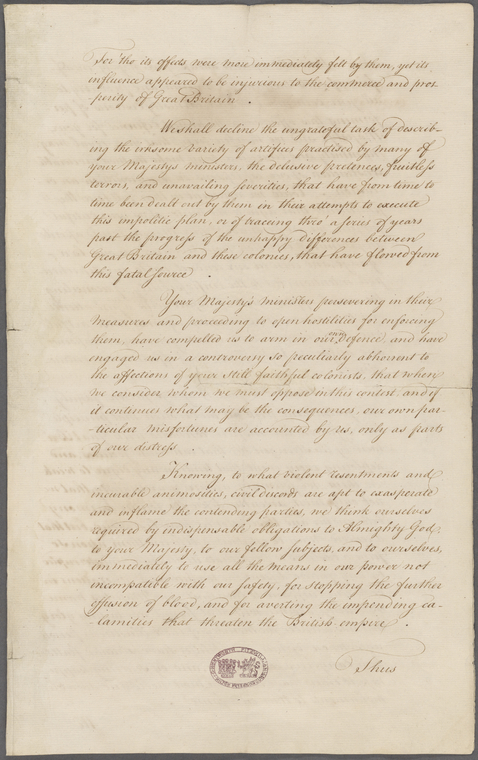 For 'tho its effects were more immediately felt by them, yet its
influence appeared to be injurious to the commerce and pros-
perity of Great Britain .
We shall decline the ungrateful task of describ-
ing the irksome variety of artifices practised by many of
your Majestys ministers, the delusive pretences, fruitless
terrors, and unavailing severities, that have from time to
time been dealt out by them in their attempts to execute
this impolitic plan, or of traceing thro' a series of years
past the progress of the unhappy differences between
Great Britain and these colonies, that have flowed from
this fatal source .
Your Majesty's ministers persevering in their
measures and proceeding to open hostilities for enforcing
them, have compelled us to arm in our own defence, and have
engaged us in a controversy so peculiarly abhorrent to
the affections of your still faithful colonists, that when
we consider whom we must oppose in this contest, and if
it continues what may be the consequences, our own par-
-ticular misfortunes are accounted by us, only as parts
of our distress .
Knowing, to what violent resentments and
incurable animosities, civil discords are apt to exasperate
and inflame the contending parties, we think ourselves
required by indispensable obligations to Almighty God,
to your Majesty, to our fellow subjects, and to ourselves,
immediately to use all the means in our power not
incompatible with our safety, for stopping the further
effusion of blood, and for averting the impending ca-
-lamities that threaten the British empire .
Thus